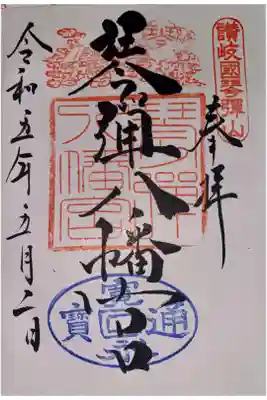 讃岐國琴彈山
奉拝
琴彈八幡宮
琴彈八幡宮
寛永通寶
令和五年五月二日